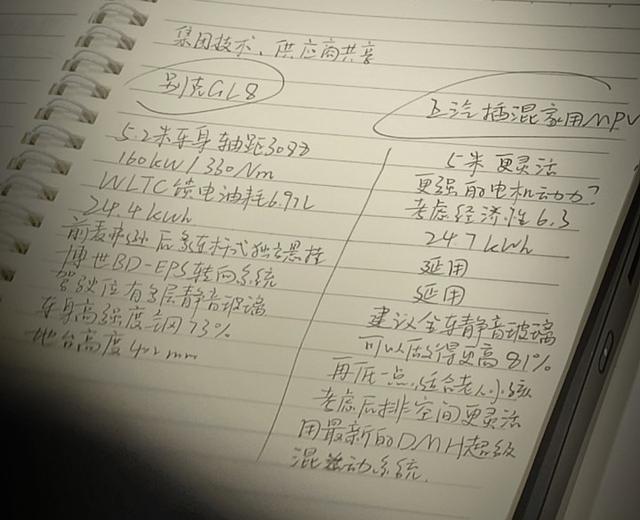 集团技术、供应商共享
别克GL8
5.2米车身 轴距3088
160kW/330Nm
WLTC馈电油耗6.97L
24.4kWh
前麦弗逊后多连杆式独立悬挂
博世BD-EPS转向系统
驾驶位有多层静音玻璃
车身高强度钢73%
地台高度402mm
上汽插混家用MPV
5米 更灵活
更强的电机动力?
考虑经济性6.3
24.7kWh
延用
延用
建议全车静音玻璃
可以做得更高81%
再低一点,适合老人小孩
考虑后排空间更灵活
用最新的DMH超级
混动系统.